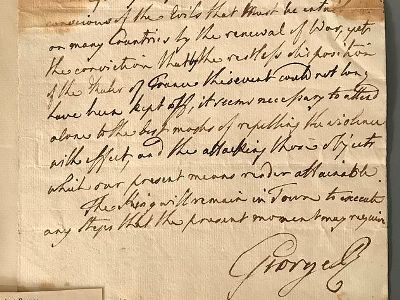 conscious of the Evils that must be entailed
on many Countries by the renewal of War, yet
the conviction that by the restless disposition
of the Ruler of France this event could not long
have been kept off, it seems necessary to attend
alone to the best modes of repelling the violence
with effect, and the attacking those objects
which our present means render attainable.
The King will remain in Town to execute
any Steps that the present moment may require
George R